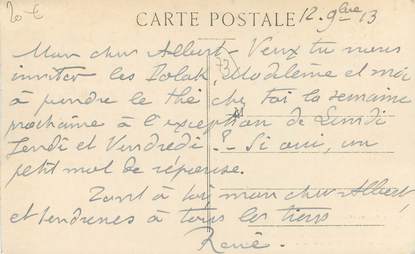 20 €
CARTE POSTALE 12. 9bre 13
Mon cher Albert - Veux tu nous
inviter les Polak, Madeleine et moi
73
à prendre le thé chez toi la semaine
prochaine à l'exception de Lundi
Jeudi et Vendredi ? - Si oui, un
petit mot de réponse.
Tout à toi mon cher Albert,
et tendresses à tous les tiens
René.